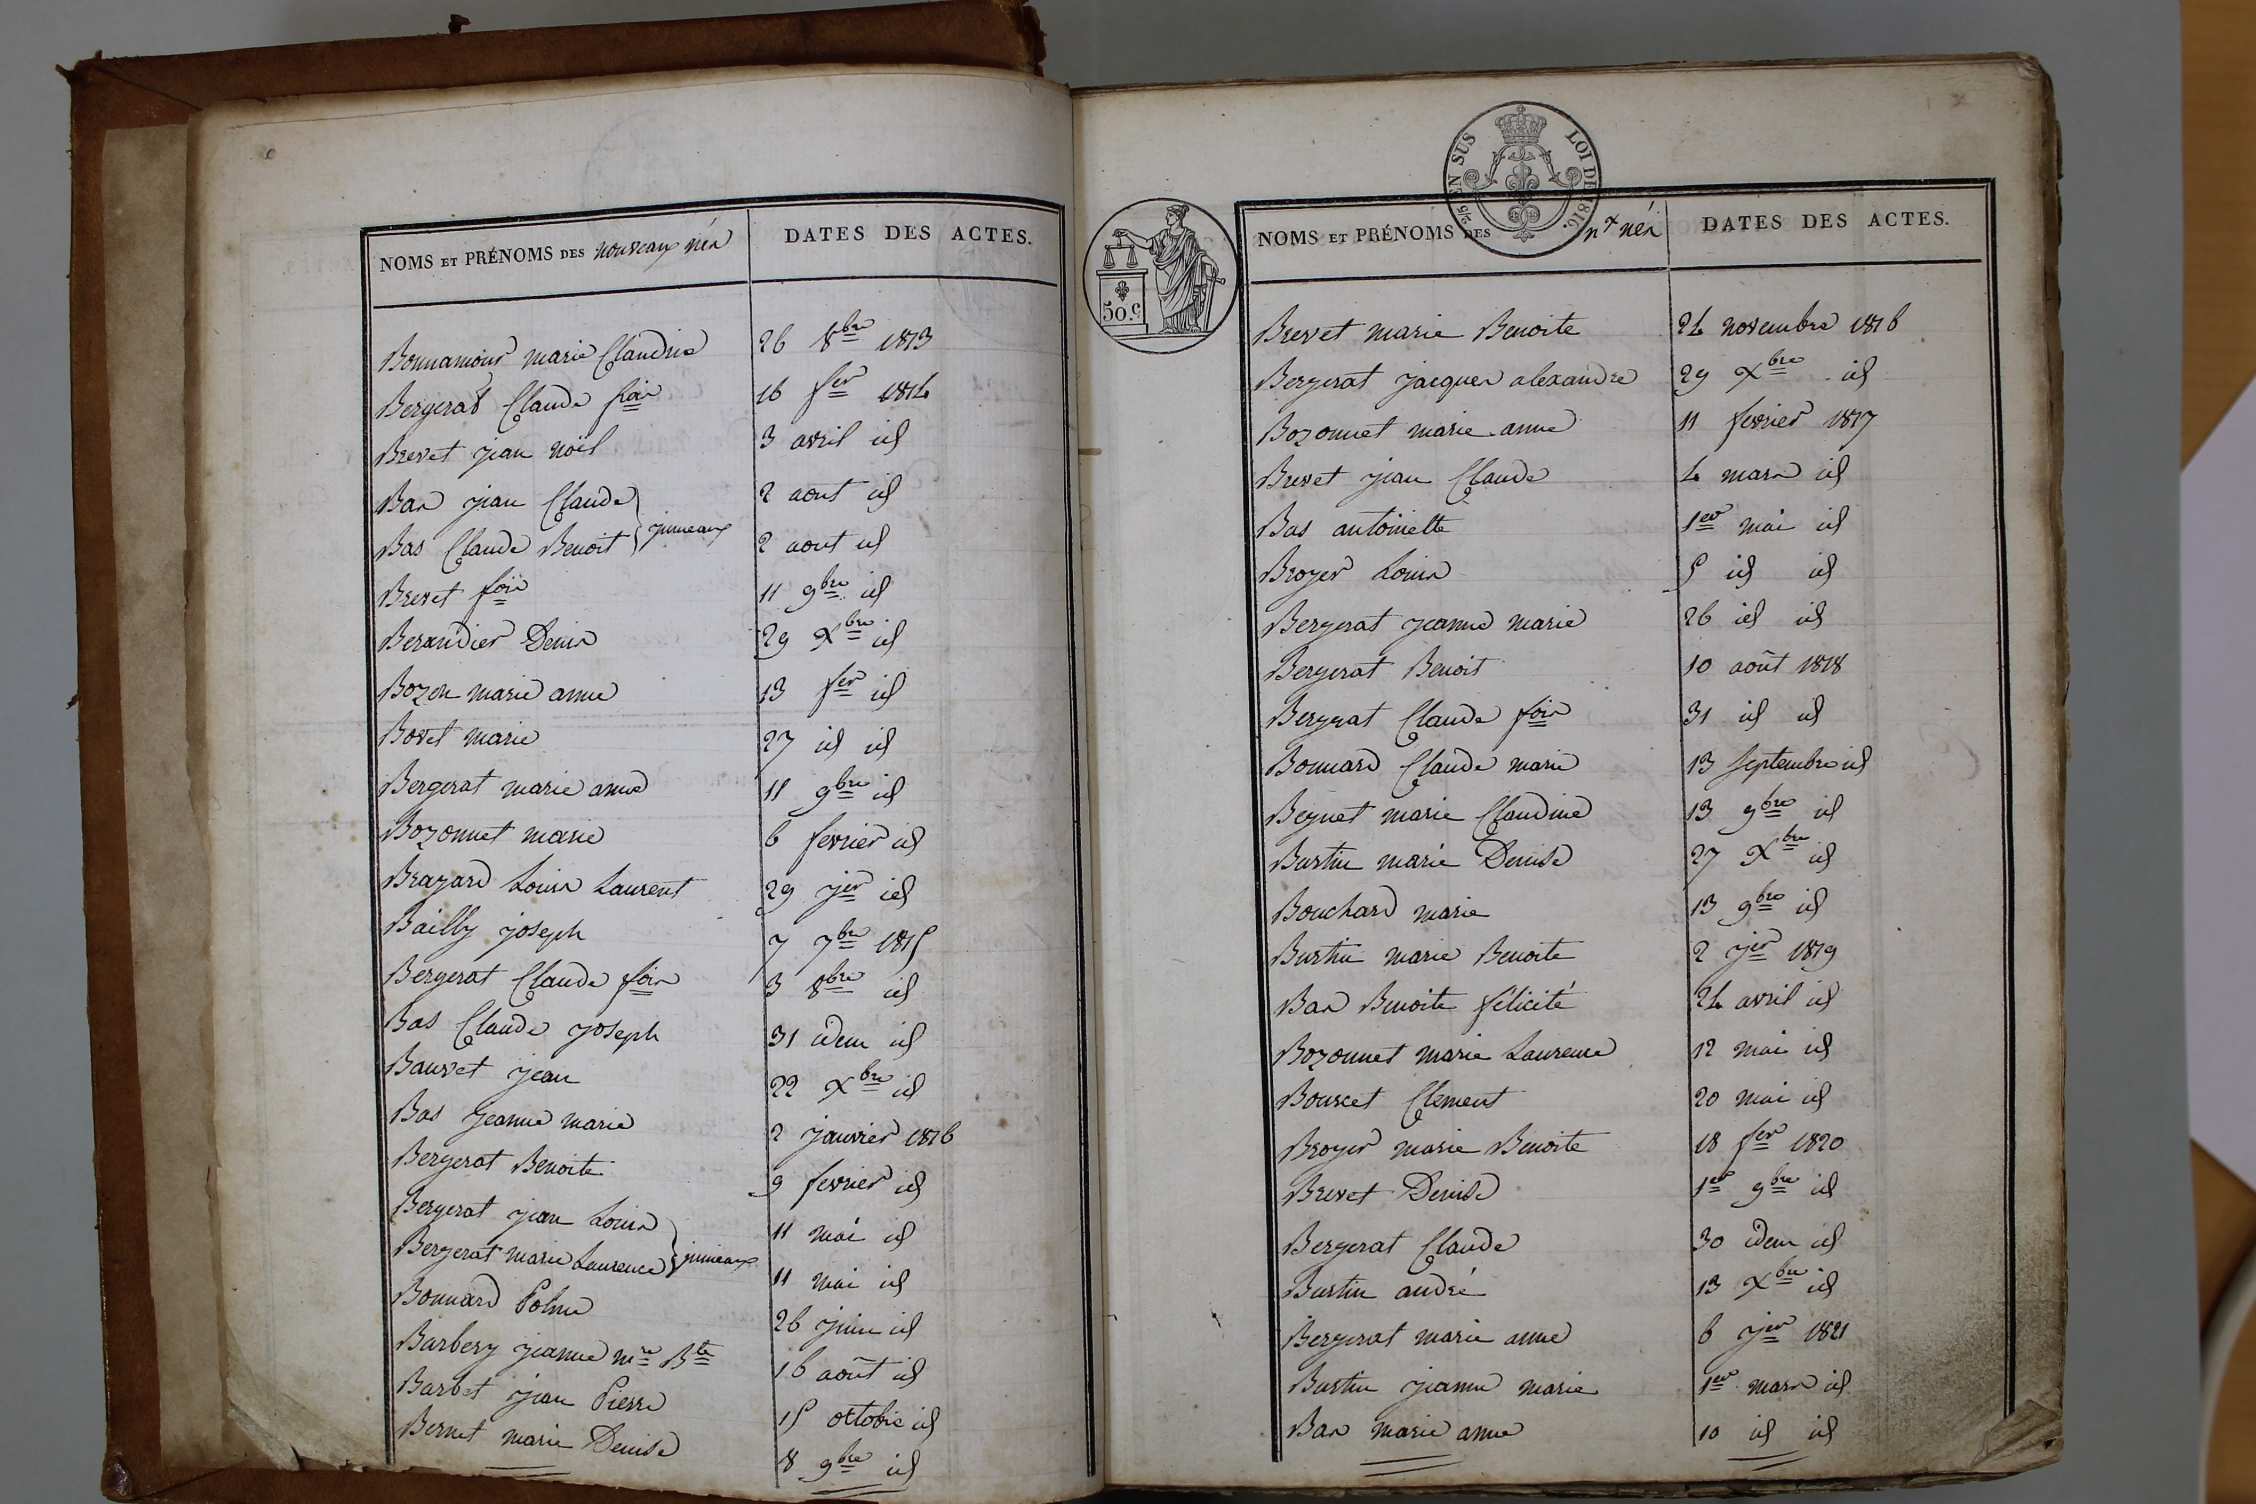 NOMS ET PRÉNOMS DES nouveaux nés DATES DES ACTES.
Bonnamour marie Claudine 26 8bre 1813
Bergerat Claude fois 16 fer 1814
Brevet jean noël 3 avril id
Bas jean Claude 2 aout id
Bas Claude Benoit } jumeaux 2 aout id
Brevet fois 11 9bre id
Beraudier Denis 29 Xbre id
Bozon marie anne 13 fer id
Bovet marie 27 id id
Bergerat marie anne 11 9bre id
Bozonnet marie 6 fevrier id
Brazard Louis Laurent 29 jer id
Bailly joseph 7 7bre 1815
Bergerat Claude fois 3 8bre id
Bas Claude joseph 31 idem id
Bauvet jean 22 Xbre id
Bas jeanne marie 2 janvier 1816
Bergerat Benoite 9 fevrier id
Bergerat jean Louis 11 mai id
Bergerat marie Laurence } jumeaux 11 mai id
Bonnard 26 juin id
Barbery jeanne mie Bte 16 août id
Barbet jean Pierre 15 octobre id
Bernet marie Denise 8 9bre id
2/5 EN SUS LOI DE 1816.
50.c
NOMS ET PRÉNOMS DES nx nés DATES DES ACTES.
Brevet marie Benoite 24 novembre 1816
Bergerat jacques alexandre 29 Xbre id
Bozonnet marie anne 11 fevrier 1817
Brevet jean Claude 4 mars id
Bas antoinette 1er mai id
Broyer Louis 5 id id
Bergerat jeanne marie 26 id id
Bergerat Benoit 10 août 1818
Bergerat Claude fois 31 id id
Bonnard Claude marie 13 septembre id
Beynet marie Claudine 13 9bre id
Burtin marie Denise 27 Xbre id
Bouchard marie 13 9bre id
Burtin marie Benoite 2 jer 1819
Bas Benoite félicité 24 avril id
Bozonnet marie Laurence 12 mai id
Bourcet Clement 20 mai id
Broyer marie Benoite 18 fer 1820
Brevet Denise 1er 9bre id
Bergerat Claude 30 idem id
Burtin andré 13 Xbre id
Bergerat marie anne 6 jer 1821
Burtin jeanne marie 1er mars id
Bas marie anne 10 id id